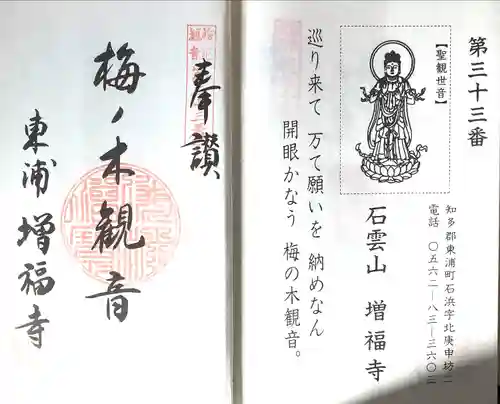 第三十三番
【聖観世音】
知多郡東浦町石浜字北庚申坊二
電話 〇五六二―八三―三六〇二
石雲山 増福寺
巡り来て 万て願いを 納めなん
開眼かなう 梅の木観音。
奉讃
梅ノ木観音
東浦 増福寺